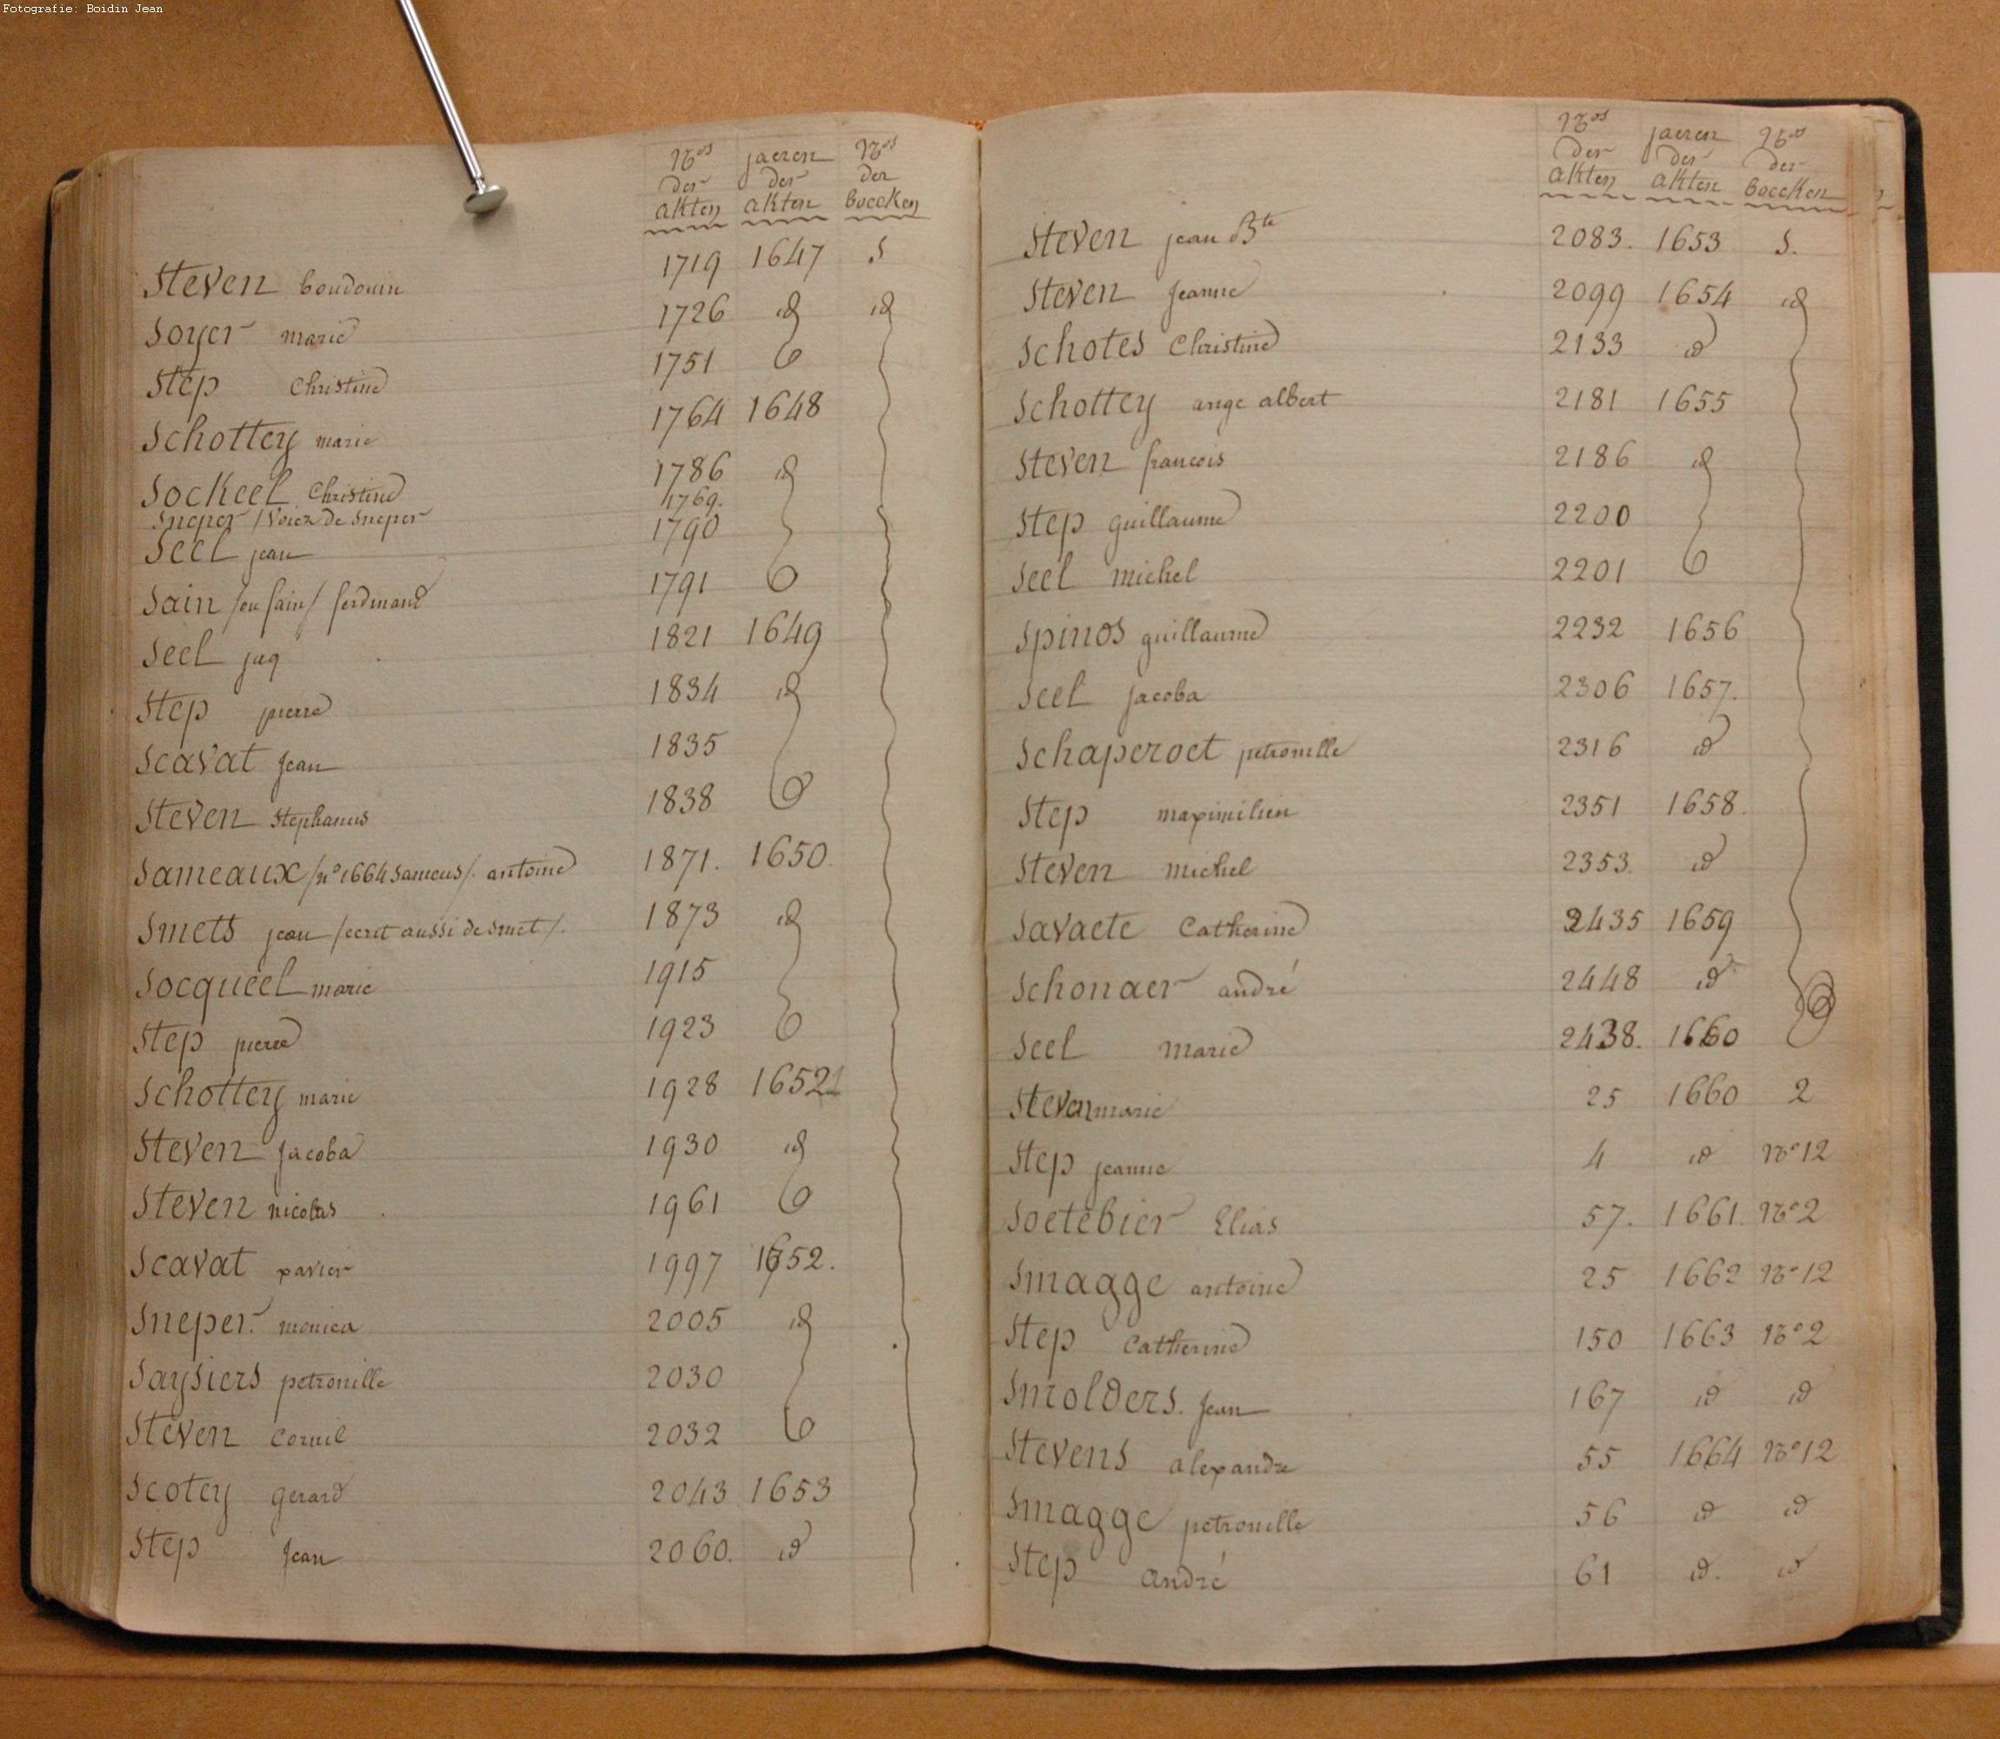 Fotografie: Boidin Jean
Nos jaeren Nos
der der der
akten akten boecken
Steven boudouin 1719 1647 S
Soyer marie 1726 id id
Step Christine 1751
Schottey marie 1764 1648
Sockeel Christine 1786 id
Sneper / voiez De Sneper 1769.
Seel jean 1790
Sain / ou fain / ferdinand 1791
Seel jaq 1821 1649
Step pierre 1834 id
Scavat Jean 1835
Steven Stephanus 1838
Sameaux / no 1664 Sameus /. antoine 1871. 1650
Smets jean / ecrit aussi de Smet /. 1873 id
Socqueel marie 1915
Step pierre 1923
Schottey marie 1928 1652
Steven Jacoba 1930 id
Steven nicolas 1961
Scavat xavier 1997 1652.
Sneper. monica 2005 id
Saysiers petronille 2030
Steven Cornil 2032
Scotey gerard 2043 1653
Step Jean 2060. id
Nos jaeren Nos
der der der
akten akten boecken
Steven jean Bte 2083. 1653 S.
Steven Jeanne 2099 1654 id
Schotes Christine 2133 id
Schottey ange albert 2181 1655
Steven francois 2186 id
Step guillaume 2200
Seel michel 2201
Spinos guillaume 2232 1656
Seel Jacoba 2306 1657.
Schaperoet petronille 2316 id
Step maximilien 2351 1658.
Steven michel 2353. id
Savaete Catherine 2435 1659
Schonaer andré 2448 id
Seel marie 2438. 1660
Steven marie 25 1660 2
Step jeanne 4 id No 12
Soetebier Elias 57. 1661. No 2
Smagge antoine 25 1662 No 12
Step Catherine 150 1663 No 2
Smolders. Jean 167 id id
Stevens alexandre 55 1664 No 12
Smagge petronille 56 id id
Step andré 61 id. id